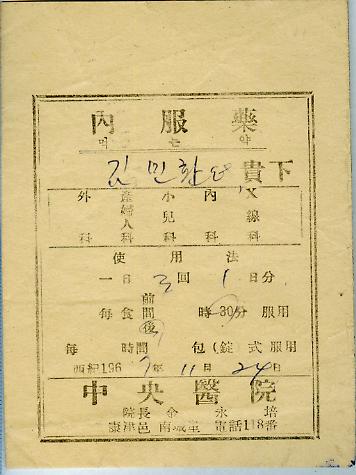 內服藥
먹는약
김민환 貴下
外科 産婦人科 小兒科 內科 X線科
使用法
一日 3回 1日分
每食前間後 時 30分 服用
每 時間 包(錠)式服用
西紀1967年 11月 24日
中央醫院
院長 金永培
康津邑 南城里 電話118番